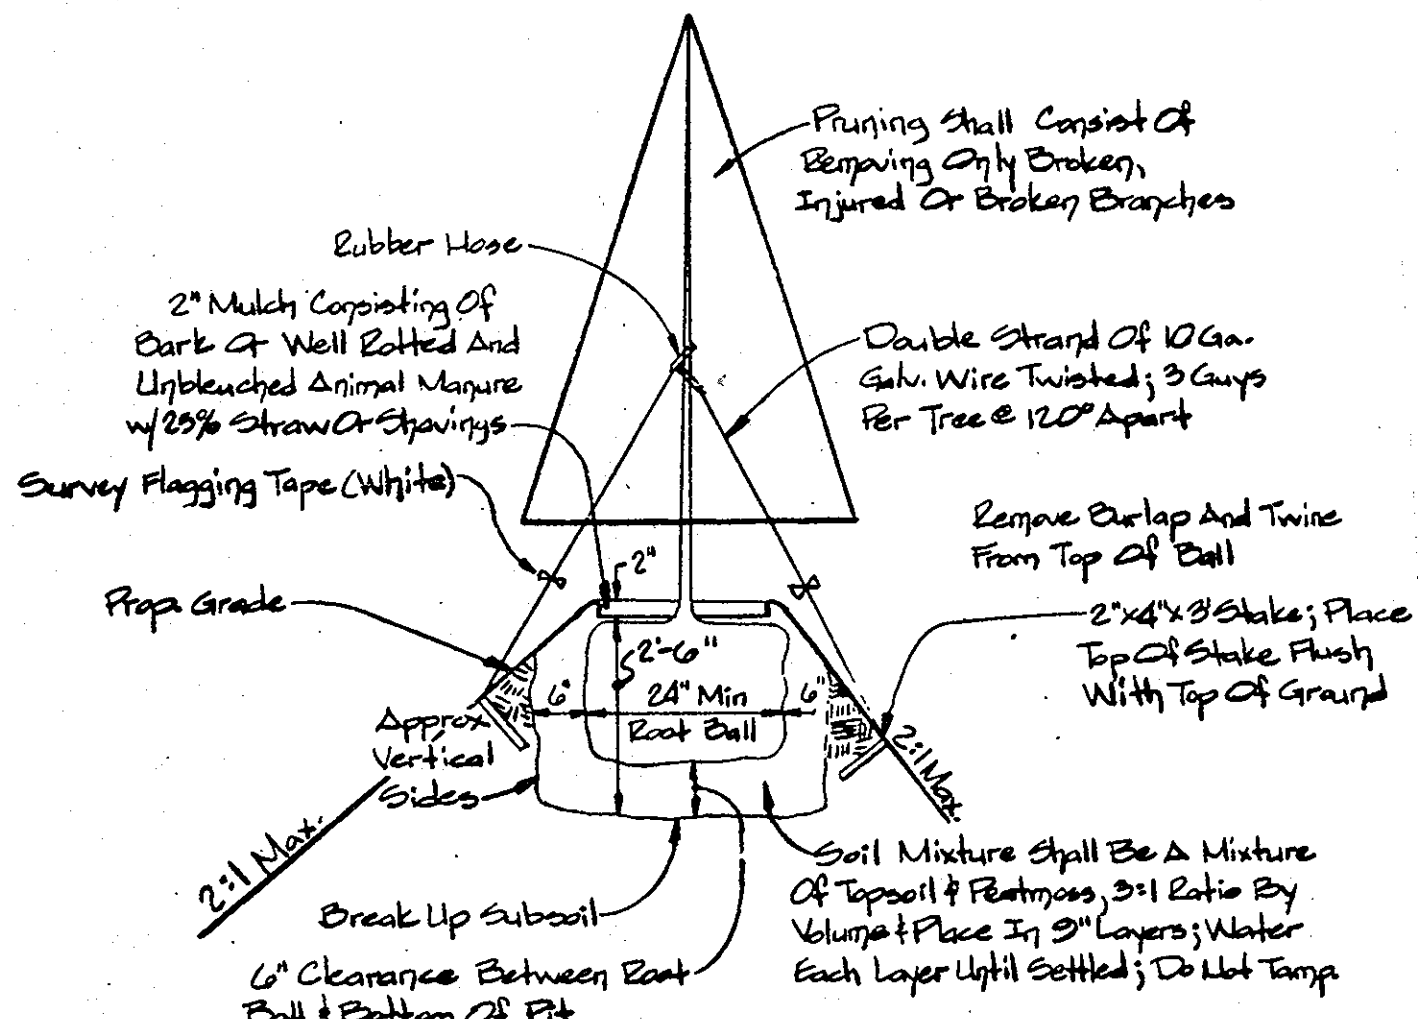 Pruning Shall Consist Of
Removing Only Broken,
Injured Or Broken Branches
Rubber Hose
2" Mulch Consisting Of
Bark Or Well Rotted And
Unbleuched Animal Manure
w/25% Straw Or Shavings
Double Strand Of 10 Ga.
Galv. Wire Twisted; 3 Guys
Per Tree @ 120° Apart
Survey Flagging Tape (White)
Remove Burlap And Twine
From Top Of Ball
2"
Prop. Grade
2"x4"x3' Stake; Place
Top Of Stake Flush
With Top Of Ground
2'-6"
6"
24" Min
6"
Root Ball
Approx
Vertical
Sides
2:1 Max.
2:1 Max.
Soil Mixture Shall Be A Mixture
Of Topsoil & Peatmoss, 3:1 Ratio By
Volume & Place In 9" Layers; Water
Each Layer Until Settled; Do Not Tamp
Break Up Subsoil
6" Clearance Between Root
Ball & Bottom Of Pit